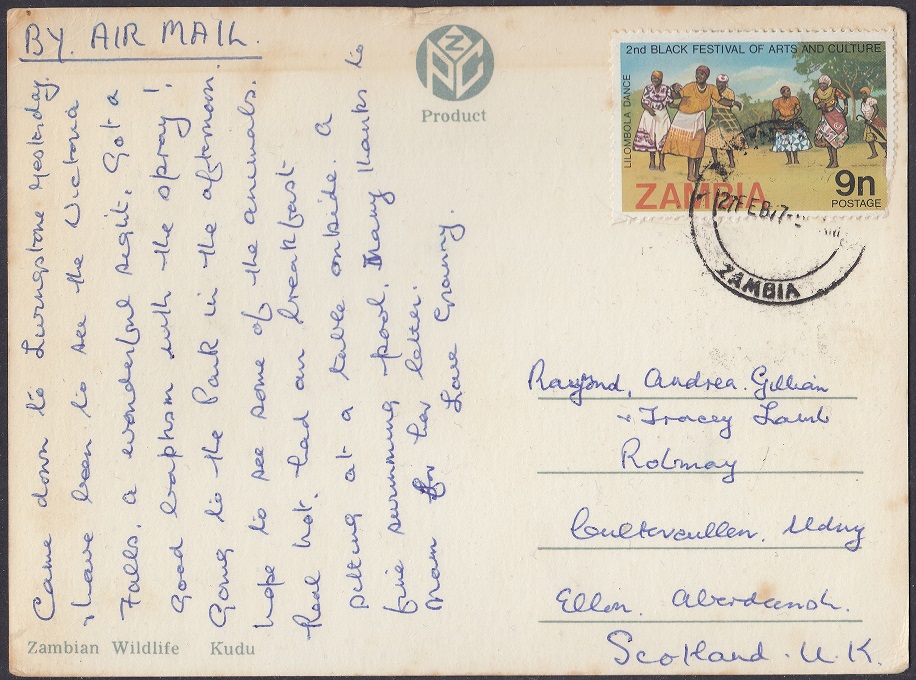 BY AIR MAIL.
ZNCC
Product
2nd BLACK FESTIVAL OF ARTS AND CULTURE
LILOMBOLA DANCE
ZAMBIA
9n
POSTAGE
27 FEB 77
ZAMBIA
Came down to Livingstone yesterday.
have been to see the Victoria
Falls. a wonderful sight. Got a
good baptism with the spray!
Going to the Park in the afternoon.
hope to see some of the animals.
Real hot. had our breakfast
sitting at a table outside. A
fine swimming pool. Many thanks to
Mam for her letter.
Love Granny.
Andrea. Gillian
+ Tracey Lamb
Rotmay
Coultercullen. Udny
Ellon. Aberdeensh.
Scotland. U.K.
Zambian Wildlife Kudu